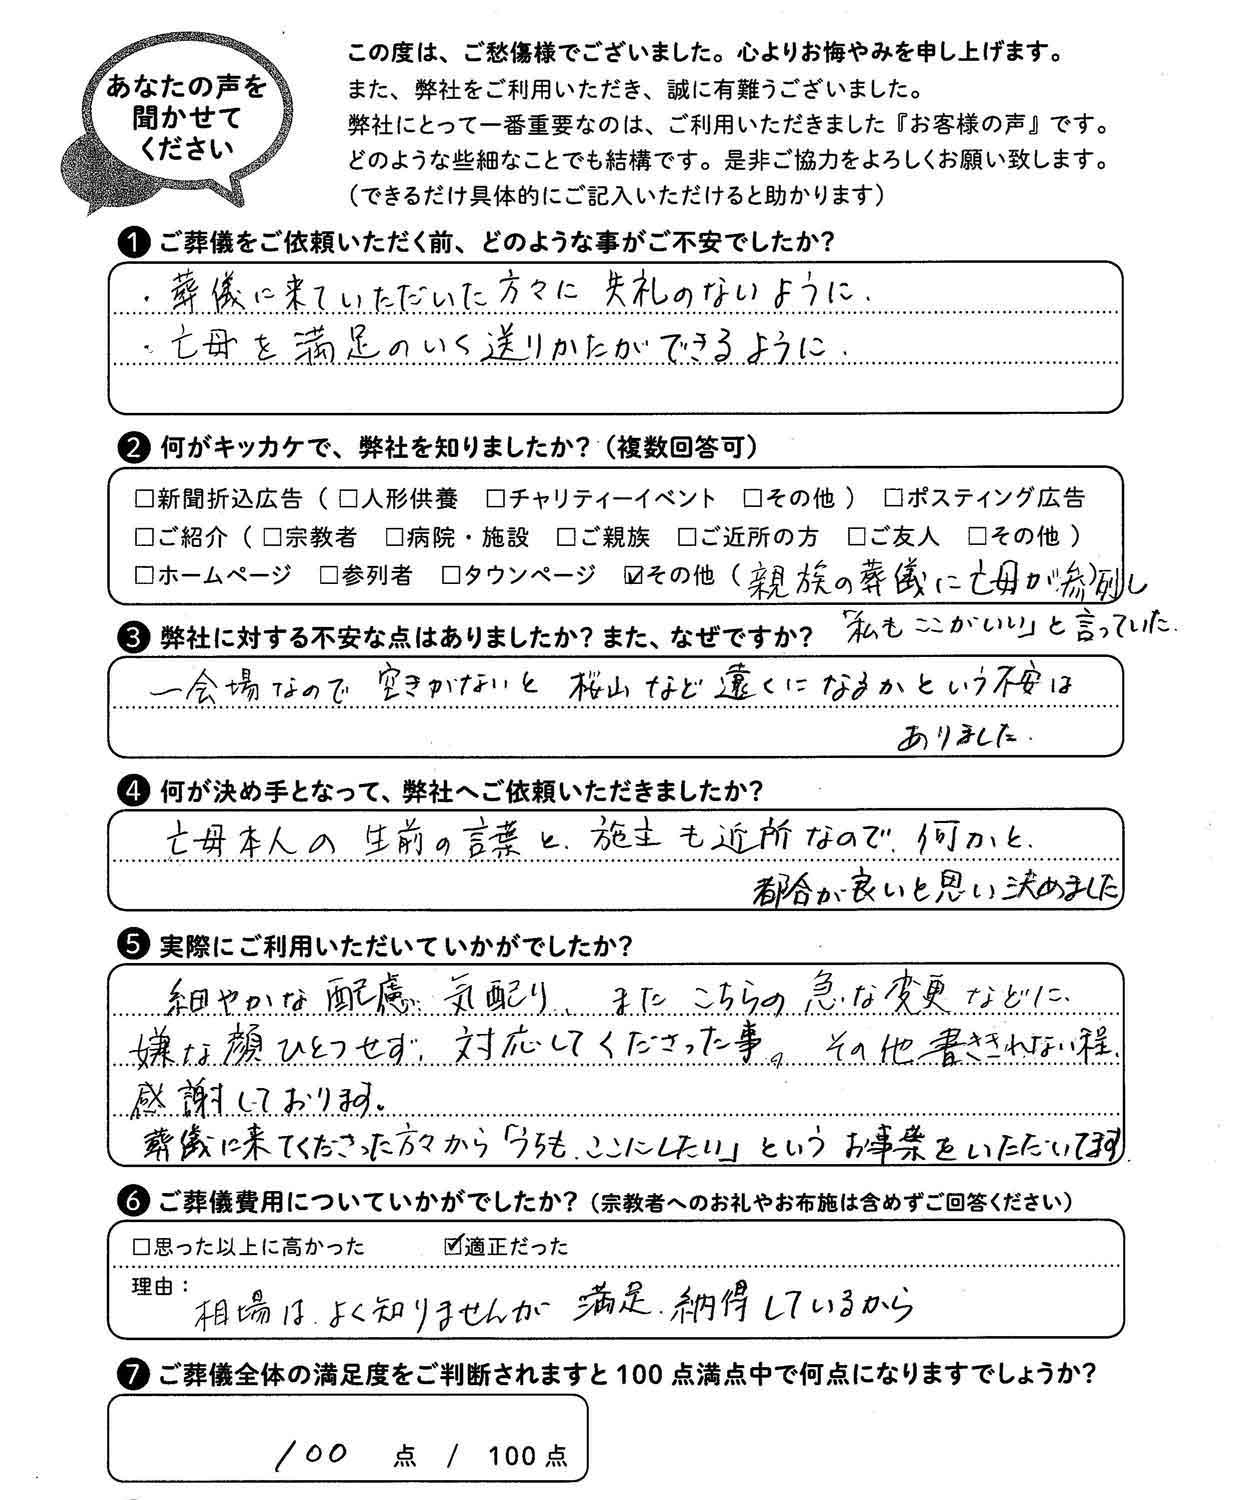 あなたの声を
聞かせて
ください
この度は、ご愁傷様でございました。心よりお悔やみを申し上げます。
また、弊社をご利用いただき、誠に有難うございました。
弊社にとって一番重要なのは、ご利用いただきました『お客様の声』です。
どのような些細なことでも結構です。是非ご協力をよろしくお願い致します。
（できるだけ具体的にご記入いただけると助かります）
❶ ご葬儀をご依頼いただく前、どのような事がご不安でしたか？
・葬儀に来ていただいた方々に 失礼のないように.
・亡母を満足のいく送りかたができるように.
❷ 何がキッカケで、弊社を知りましたか？（複数回答可）
□新聞折込広告（ □人形供養 □チャリティーイベント □その他 ） □ポスティング広告
□ご紹介（ □宗教者 □病院・施設 □ご親族 □ご近所の方 □ご友人 □その他 ）
□ホームページ □参列者 □タウンページ ☑その他（ 親族の葬儀に亡母が参列し
「私も ここがいい」と言っていた.
❸ 弊社に対する不安な点はありましたか？また、なぜですか？
一会場なので 空きがないと 桜山など遠くになるかという不安は
ありました.
❹ 何が決め手となって、弊社へご依頼いただきましたか？
亡母本人の 生前の言葉と、施主も近所なので、何かと、
都合が良いと思い決めました
❺ 実際にご利用いただいていかがでしたか？
細やかな配慮、気配り、またこちらの急な変更などに、
嫌な顔ひとつせず、対応してくださった事。その他書ききれない程、
感謝しております。
葬儀に来てくださった方々から「うちも、ここにしたい」という お事葉をいただいてます.
❻ ご葬儀費用についていかがでしたか？（宗教者へのお礼やお布施は含めずご回答ください）
□思った以上に高かった ☑適正だった
理由：
相場は、よく知りませんが 満足、納得しているから
❼ ご葬儀全体の満足度をご判断されますと 100 点満点中で何点になりますでしょうか？
100 点 / 100 点